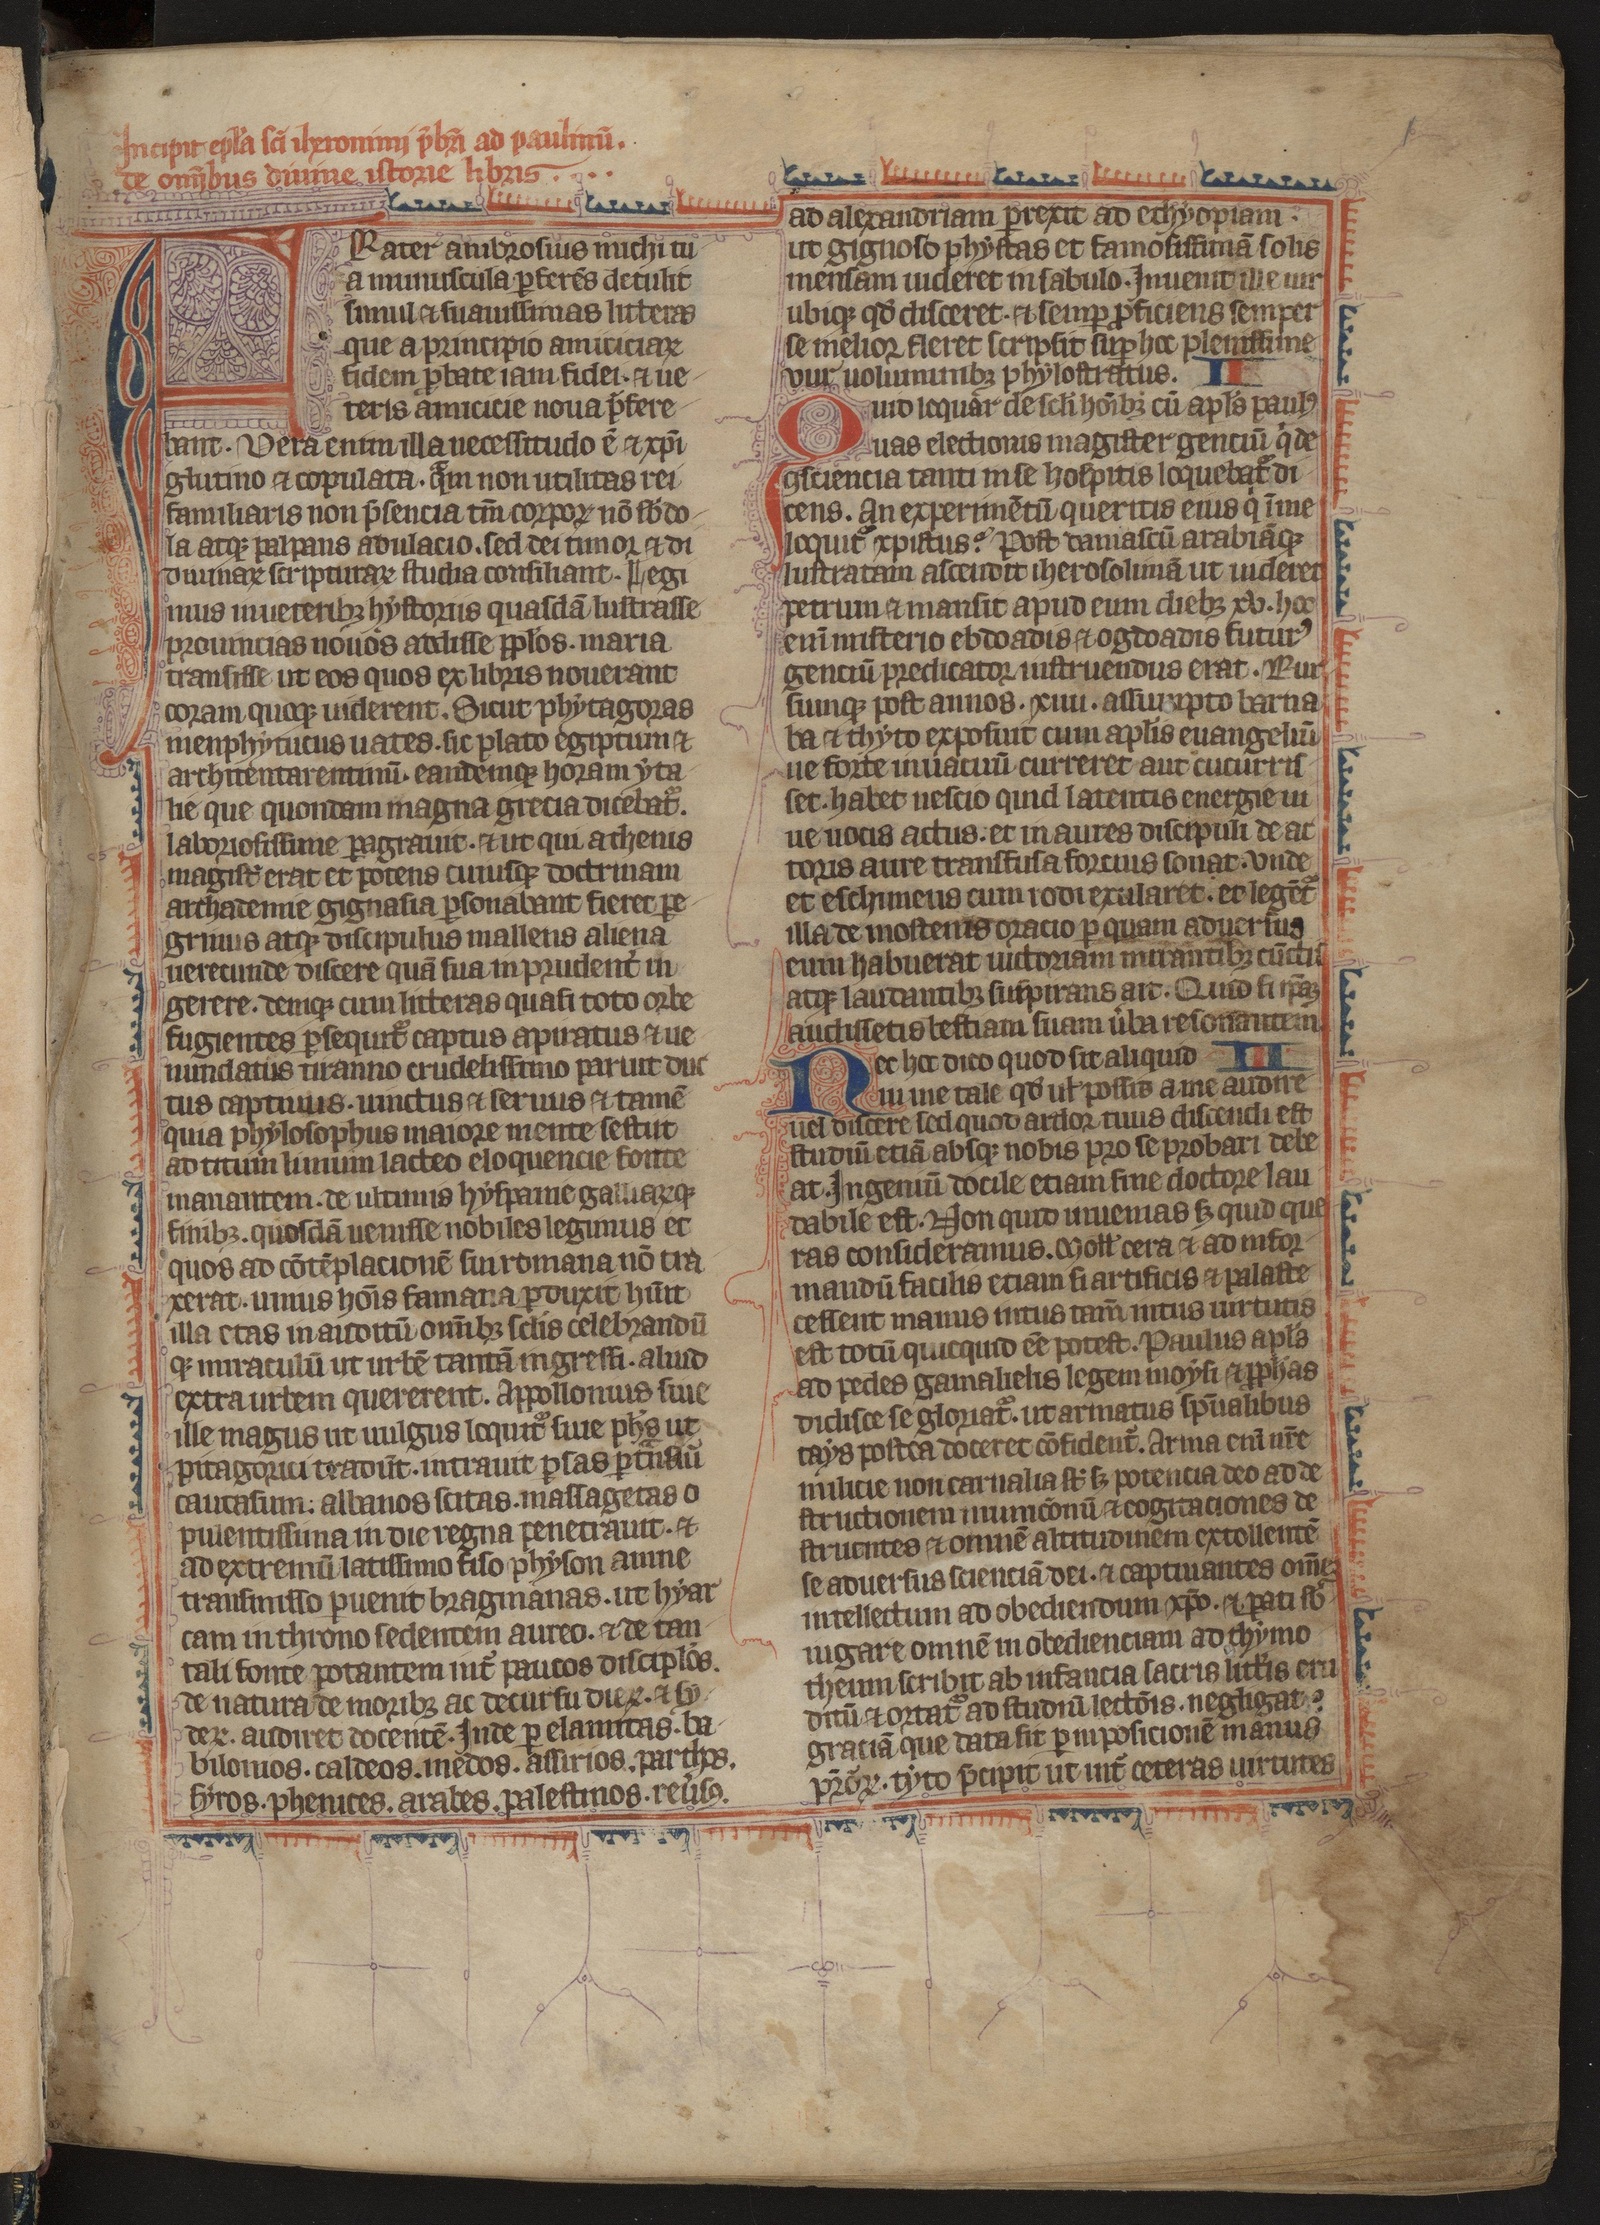 Incipit epl̄a sc̄i iheronimi p̄bri ad paulinū.
de om̄ibus diuine istorie libris
FRater ambrosius michi tu
a munuscula ꝑferēs detulit
simul ⁊ suauissimas litteras
que a principio amiciciaꝝ
fidem ꝓbate iam fidei. ⁊ ue
teris amicicie noua p̄fere
bant. Vera enim illa necessitudo ē ⁊ xp̄i
glutino ⁊ copulata. qͣm non utilitas rei
familiaris non p̄sencia tm̄ corpoꝝ nō sb̄do
la atqꝫ palpans adulacio. sed dei timor ⁊ di
diuinaꝝ scripturaꝝ studia consiliant. Legi
mus in ueteribꝫ hystoriis quasdā lustrasse
prouincias nouos adisse ꝓplos. maria
transisse ut eos quos ex libris nouerant
coram quoqꝫ uiderent. Sicut phytagoras
menphyticus uates. sic plato egiptum ⁊
architentarentinū. eandemqꝫ horam yta
lie que quondam magna grecia dicebat᷑.
laboriosissime ꝑagrauit. ⁊ ut qui athenis
magist᷑ erat et potens cuiusqꝫ doctrinam
archademie gignasia ꝑsonabant fieret pe
grinus atqꝫ discipulus mallens aliena
uerecunde discere quā sua inprudent᷑ in
gerere. deniqꝫ cum litteras quasi toto orbe
fugientes ꝑsequit᷑ captus apiratus ⁊ ue
nundatus tiranno crudelissimo paruit duc
tus captiuus. uinctus ⁊ seruus ⁊ tamē
quia phylosophus maiore mente sestut
ad titum liuium lacteo eloquencie fonte
manantem. de ultimis hyspanie galliarqꝫ
finibꝫ. quosdā uenisse nobiles legimus et
quos ad cōtēplacionē sui romana nō tra
xerat. unius hōis fama ꝑduxit hūit
illa etas inauditū om̄ibꝫ sclis celebrandū
qꝫ miraculū ut urbē tantā ingressi. aliud
extra urbem quererent. Appollonius siue
ille magus ut uulgus loquit᷑ siue phys ut
pitagorici tradūt. intrauit ꝑsas ꝑt̄nsiū
caucasum: albanos scitas. massagetas o
pulentissima indie regna penetrauit. ⁊
ad extremū latissimo fiso physon amne
transmisso ꝑuenit bragmanas. ut hyar
cam in throno sedentem aureo. ⁊ de tan
tali fonte potantem int᷑ paucos disciplōs.
de natura de moribꝫ ac decursu dieꝝ. ⁊ sy
deꝝ. audiret docentē. Inde ꝑ elamitas. ba
bilonios. caldeos. medos. assirios. parthos.
syros. phenices. arabes. palestinos. reūsꝰ.
ad alexandriam ꝑrexit ad ethyopiam.
ut gignoso phystas et famosissimā solis
mensam uideret in sabulo. Inuenit ille uir
ubiqꝫ qd̄ disceret. ⁊ semꝑ ꝓficiens semper
se melior fieret scripsit suꝑ hoc plenissime
viii uoluminibꝫ phylostratus. II
Quid loquar de scl̄i hōībꝫ cū apl̄s paulꝰ
uas electionis magister genciū q̇ de
ꝯsciencia tanti in se hospitis loquebat᷑ di
cens. An experimētū queritis eius q̇ ī me
loquit᷑ xpistus? Post damascū arabiāqꝫ
lustratam ascendit iherosolimā ut uideret
petrum ⁊ mansit apud eum diebꝫ xv. hoc
eni misterio ebdoadis ⁊ ogdoadis futurꝰ
genciū predicator instruendus erat. Rur
sumqꝫ post annos. xiiii. assumpto barna
ba ⁊ thyto exposuit cum apl̄is euangeliū
ne forte in uacuū curreret aut cucurris
set. habet nescio quid latentis energie ui
ue uocis actus. et in aures discipuli de ac
toris aure transfusa forcius sonat. Vnde
et eschineus cum rodi exularet. et legēt᷑
illa demostenis oracio ꝑ quam aduersus
eum habuerat uictoriam mirantibꝫ cūctis
atqꝫ laudantibꝫ suspirans ait. Quid si ip̄aꝫ
audissetis bestiam suam ūba resonantem
Nec hoc dico quod sit aliquid III
in me tale qd̄ ul̄ possis a me audire
uel discere sed quod ardor tuus discendi est
studiū etiā absqꝫ nobis pro se probari debe
at. Ingeniū docile etiam sine doctore lau
dabile est. Non quid inuenias sꝫ quid que
ras consideramus. Moll᷑ cera ⁊ ad infor
mandū facilis etiam si artificis ⁊ palaste
cessent manus intus tam̄ intus uirtutis
est totū quicquid eē potest. Paulus apl̄s
ad pedes gamalielis legem moysi ⁊ ꝓphas
didisce se gloriat᷑. ut armatus sp̄ualibus
tays postea doceret cōfident᷑. Arma eni nr̄e
milicie non carnalia st̄ sꝫ potencia deo ad de
structionem municōnū ⁊ cogitaciones de
struentes ⁊ omnē altitudinem extollentē
se aduersus scienciā dei. ⁊ captiuantes om̄eꝫ
intellectum ad obediendum xp̄o. ⁊ ꝑati sb̄
iugare omnē inobedienciam ad thymo
theum scribit ab infancia sacris litt̄is eru
ditū ⁊ ortat᷑ ad studiū lectōis. negligat?
graciā que data sit ꝑ inposicionē manus
pr̄or̄ꝝ. tyto p̄cipit ut int᷑ ceteras uirtutes